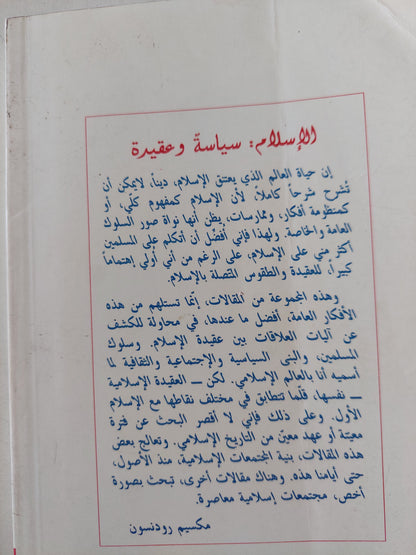 الإسلام: سياسةً وعقيدة
إن حياة العالم الذي يعتنق الإسلام، ديناً، لايمكن أن
تُشرح شرحاً كاملاً، لأن الإسلام كمفهوم كلّي، أو
كمنظومة أفكار، وممارسات، يظن أنها نواة صور السلوك
العامة والخاصة. ولهذا فإني أفضّل أن أتكلم على المسلمين
أكثر مني على الإسلام، على الرغم من أني أولي إهتماماً
كبيراً، للعقيدة والطقوس المتصلة بالإسلام.
وهذه المجموعة من المقالات، إنّما تستلهم من هذه
الأفكار العامة، أفضل ما عندها، في محاولة للكشف
عن آليات العلاقات بين عقيدة الإسلام، وسلوك
المسلمين، والبنى السياسية والإجتماعية والثقافية لما
أسميه أنا بالعالم الإسلامي. لكن ــ العقيدة الإسلامية
ــ نفسها، قلّما تتطابق في مختلف نقاطها مع الإسلام
الأول. وعلى ذلك فإني لا أقصر البحث عن فترة
معينة أو عهد معيّن من التاريخ الإسلامي. وتعالج بعض
هذه المقالات، بنية المجتمعات الإسلامية، منذ الأصول،
حتى أيامنا هذه. وهناك مقالات أخرى، تبحث بصورة
أخص، مجتمعات إسلامية معاصرة.
مكسيم رودنسون